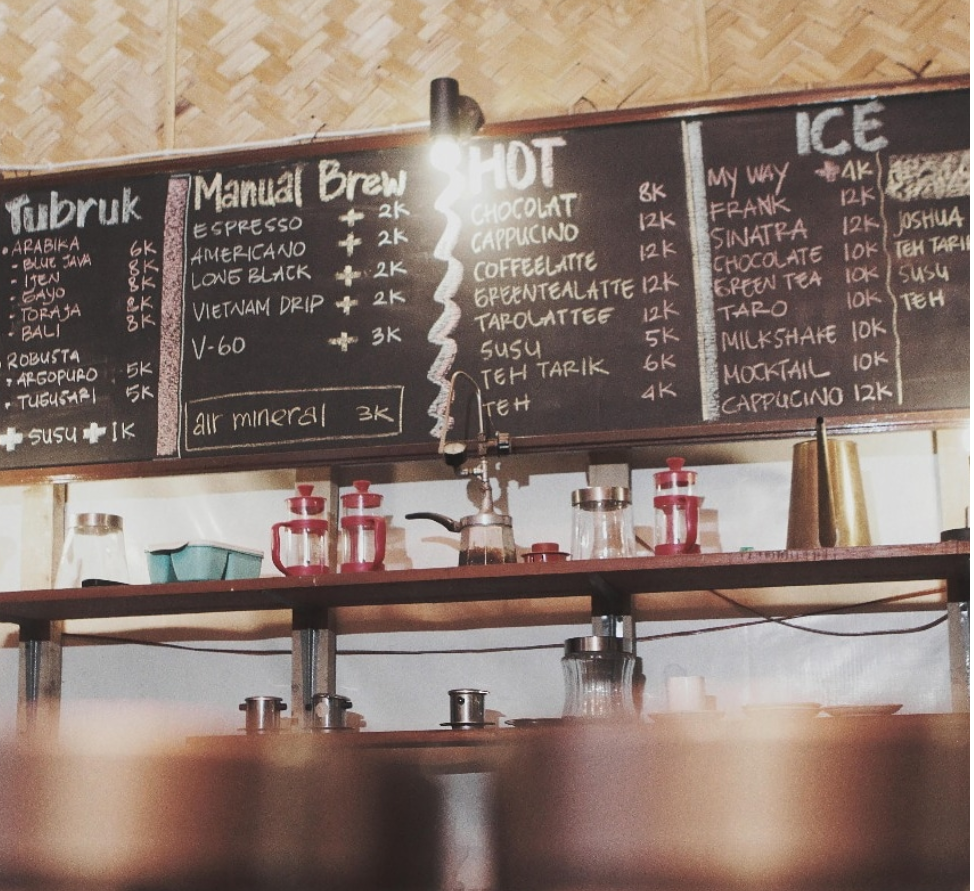 Tubruk
• ARABIKA
- BLUE JAVA 6K
- IJEN 8K
- GAYO 8K
- TORAJA 8K
- BALI 8K
ROBUSTA
• ARGOPURO 5K
• TUGUSARI 5K
+ SUSU + 1K
Manual Brew
ESPRESSO + 2K
AMERICANO + 2K
LONG BLACK + 2K
VIETNAM DRIP + 2K
V-60 + 3K
air mineral 3K
HOT
CHOCOLAT 8K
CAPPUCINO 12K
COFFEELATTE 12K
GREENTEALATTE 12K
TAROLATTEE 12K
SUSU 5K
TEH TARIK 6K
TEH 4K
ICE
MY WAY +4K
FRANK 12K
SINATRA 12K
CHOCOLATE 10K
GREEN TEA 10K
TARO 10K
MILKSHAKE 10K
MOCKTAIL 10K
CAPPUCINO 12K
JOSHUA
TEH TARIK
SUSU
TEH